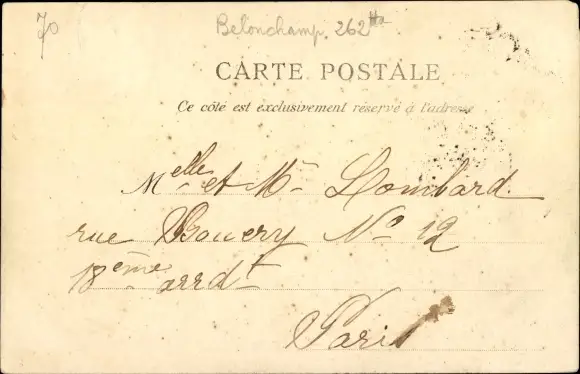 70
Belonchamp. 262 hta
CARTE POSTALE
Ce côté est exclusivement réservé à l'adresse
Melle et Mr Lombard
rue Bouery No 12
18ème arrdt
Paris